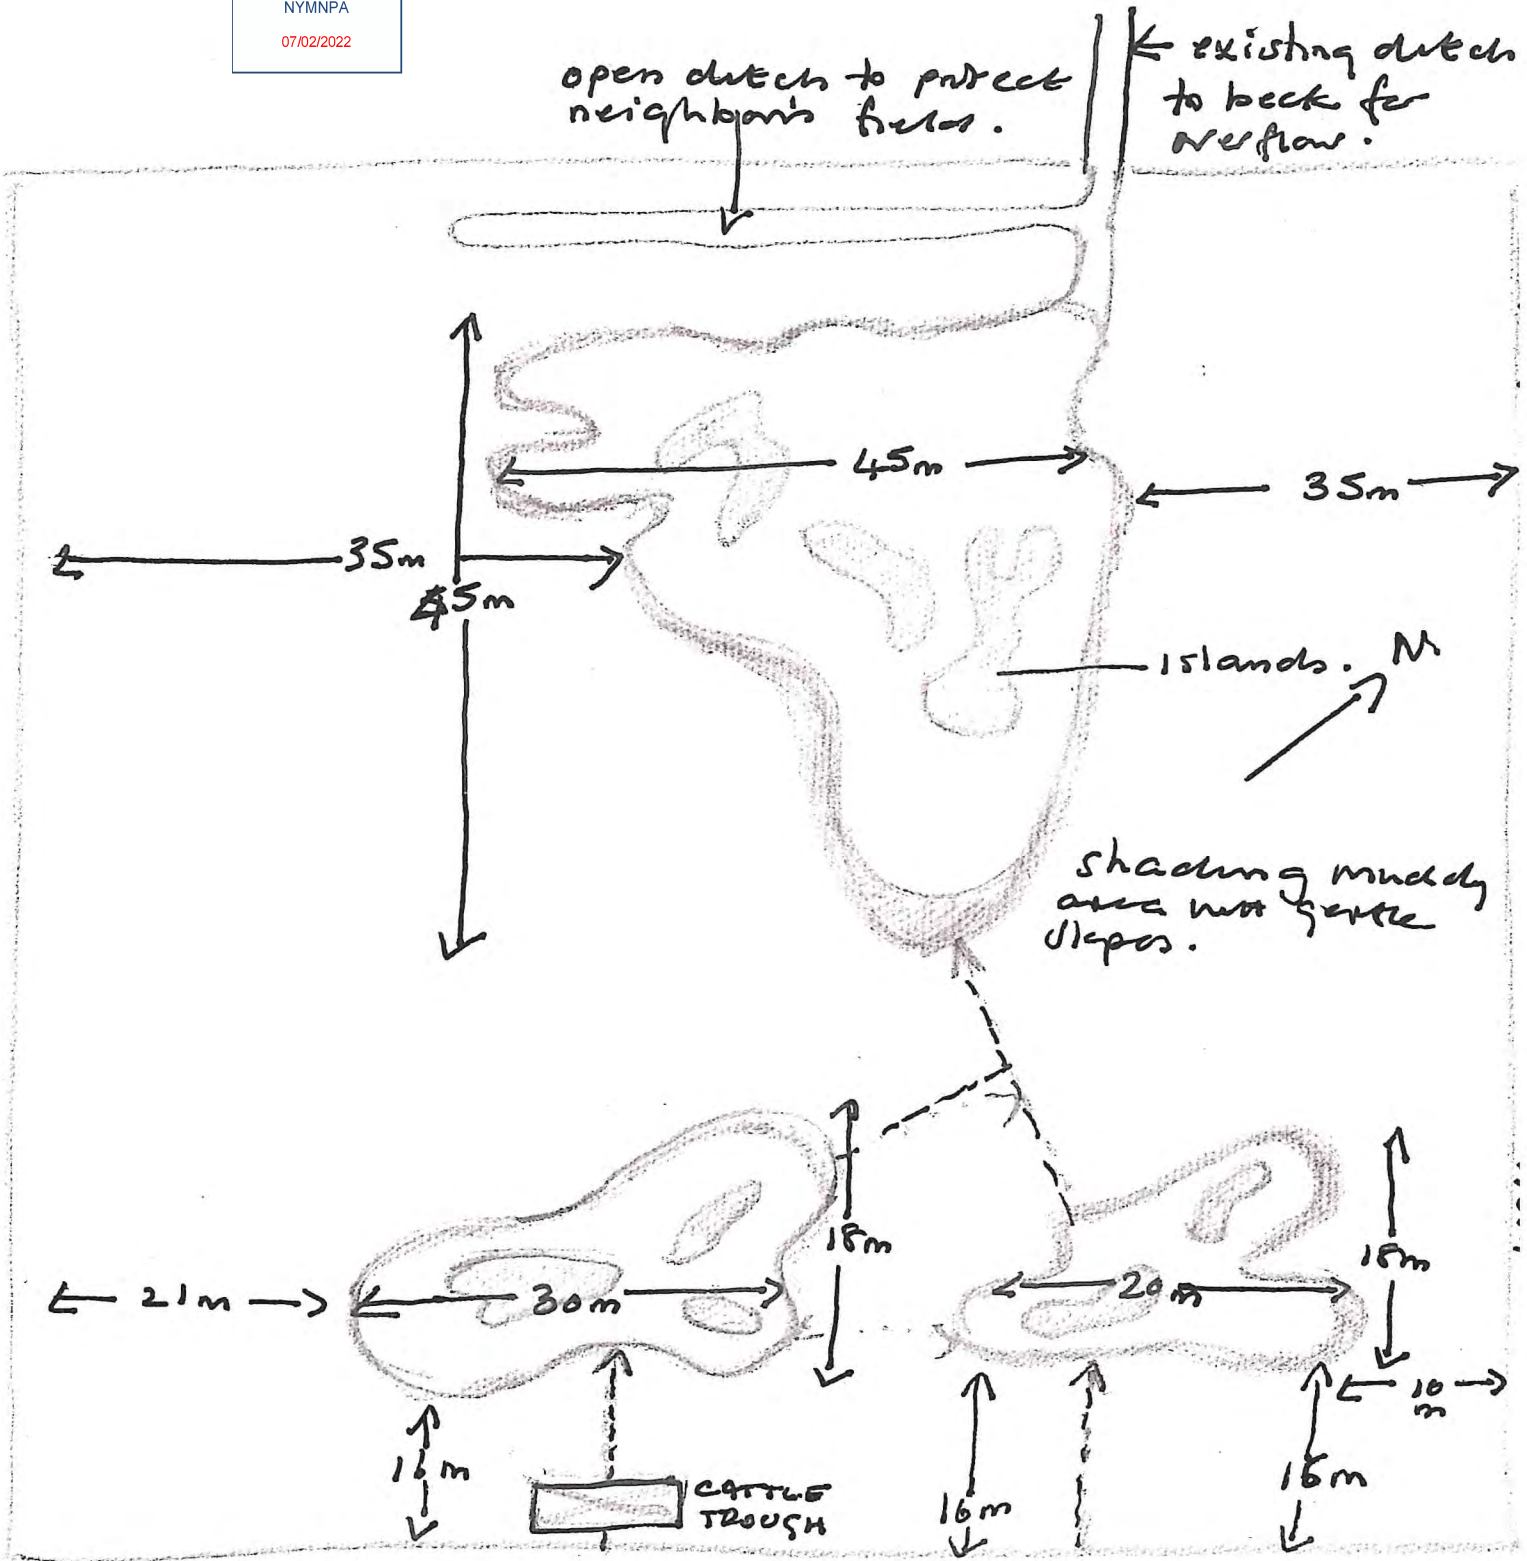 NYMNPA
07/02/2022
open ditch to protect
neighbour's field.
existing ditch
to beck for
overflow.
45m
35m
35m
45m
Islands.
N
shading muddy
area with gentle
slopes.
18m
18m
21m
30m
20m
10
m
16m
16m
16m
CATTLE
TROUGH